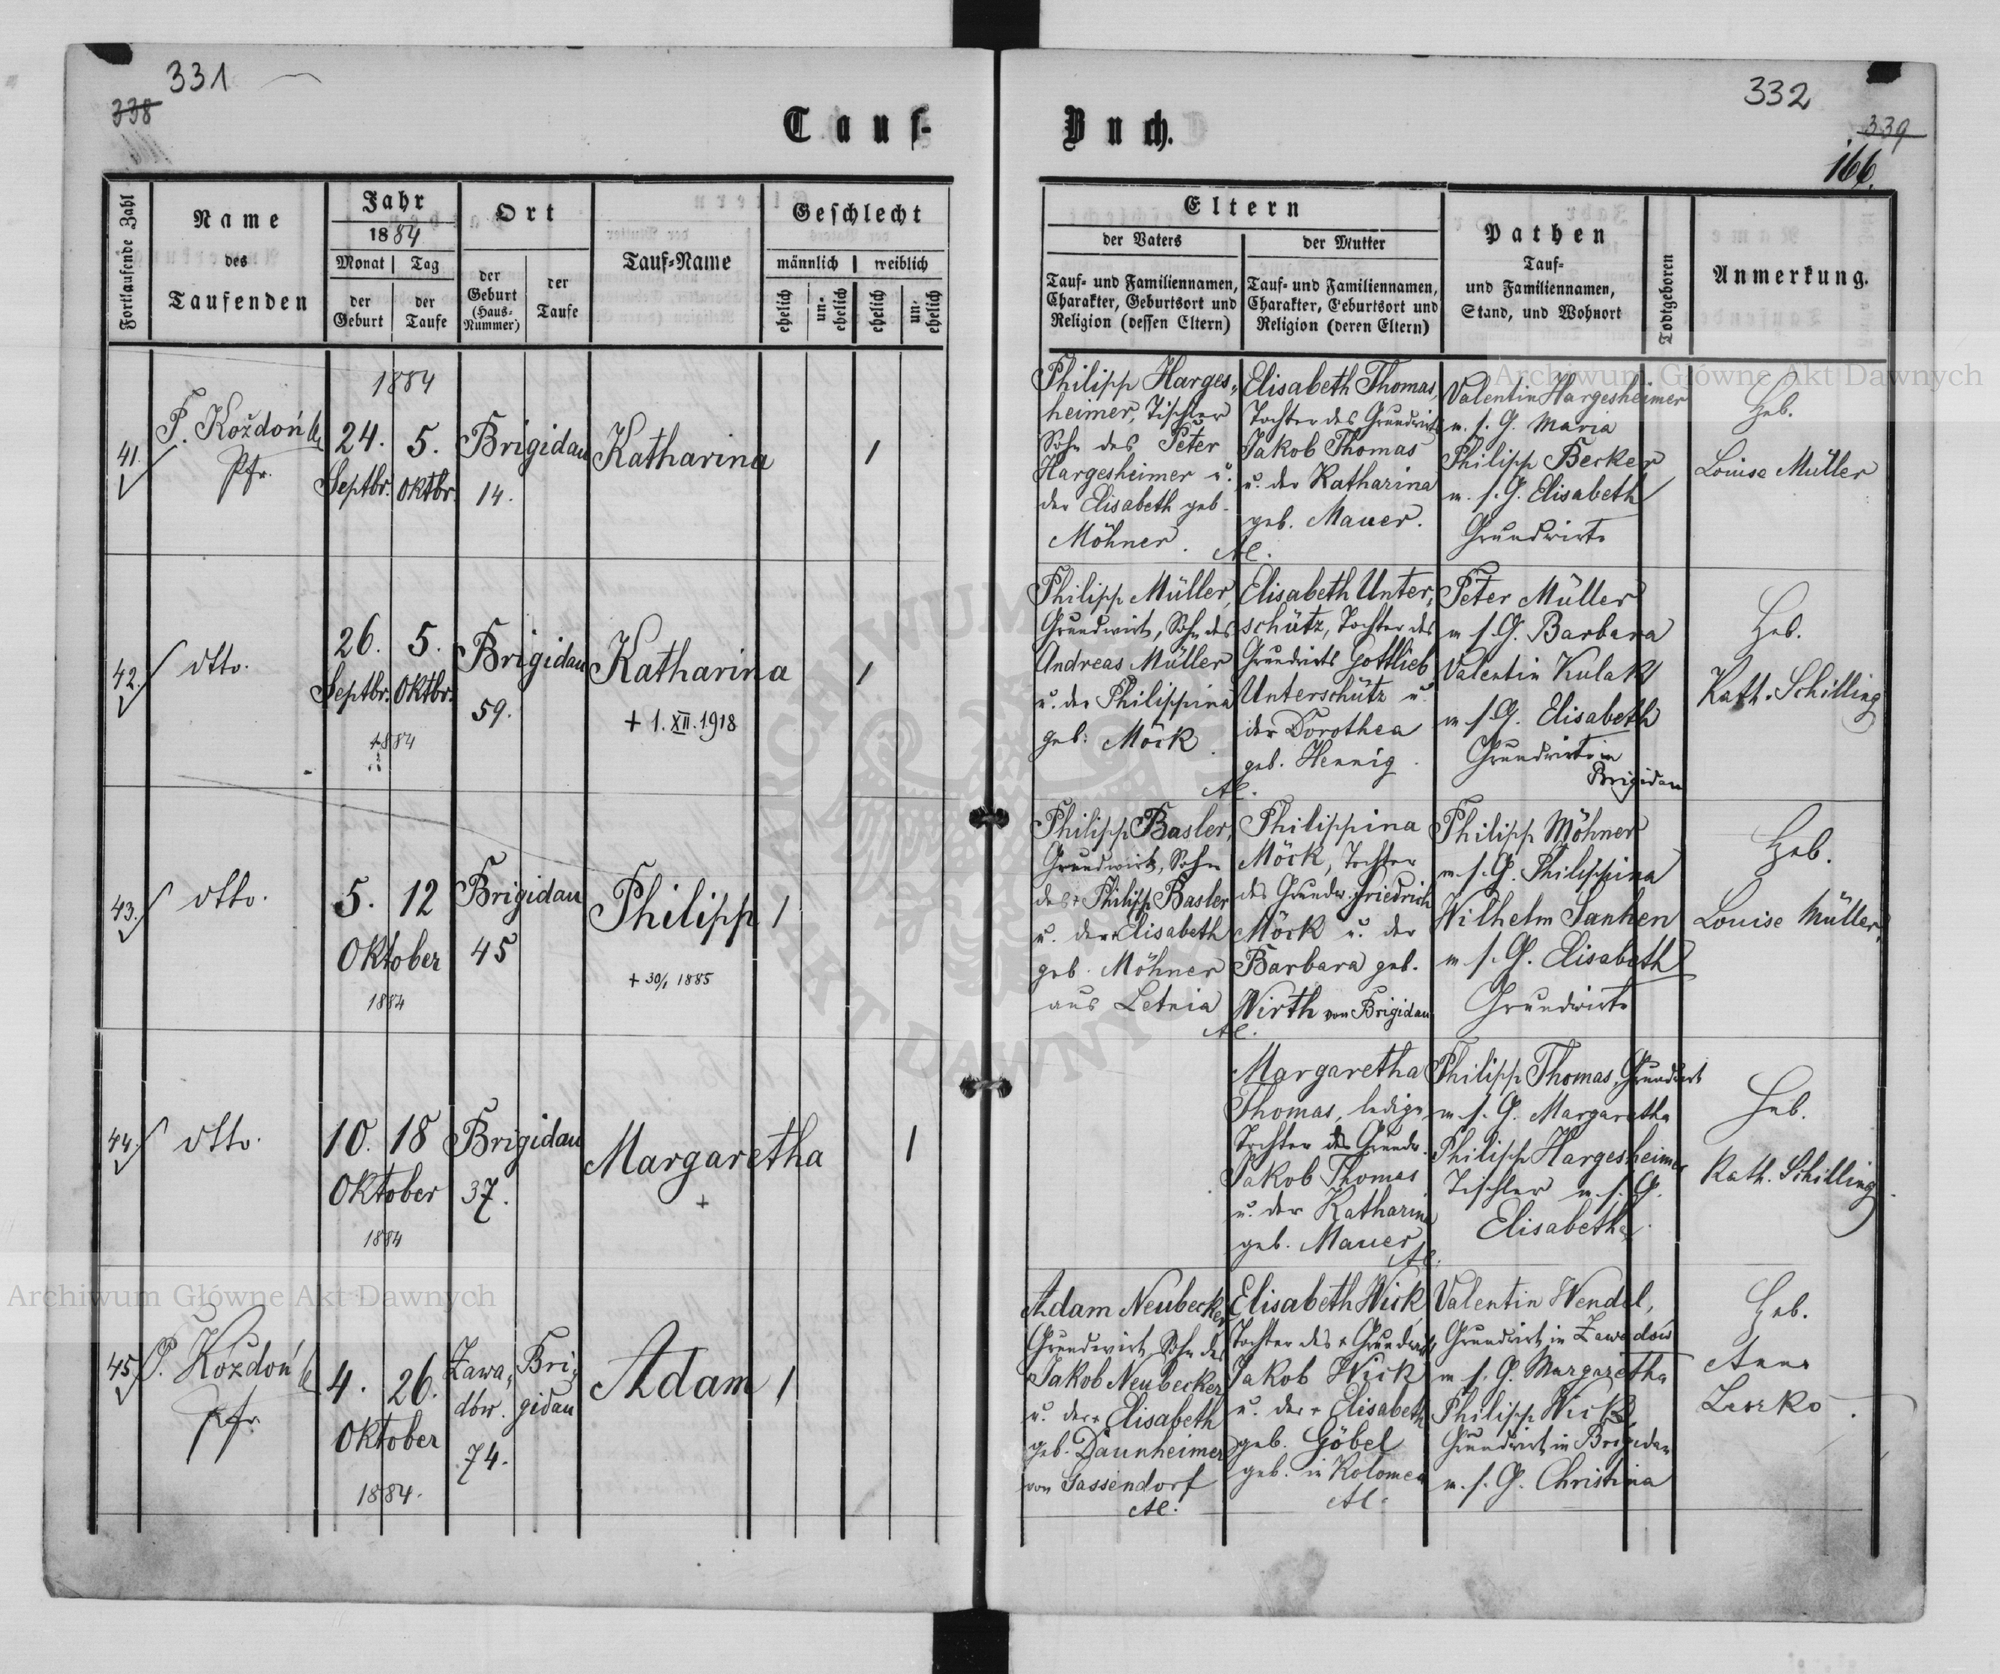 331
338
332
339
166.
Tauf-
Buch.
Fortlaufende Zahl
Name
des
Taufenden
Jahr
1884
Monat
Tag
der
Geburt
der
Taufe
Ort
der
Geburt
(Haus-
Nummer)
der
Taufe
Tauf-Name
Geschlecht
männlich
weiblich
ehelich
un-
ehelich
ehelich
un-
ehelich
Eltern
der Vaters
der Mutter
Tauf- und Familiennamen,
Charakter, Geburtsort und
Religion (dessen Eltern)
Tauf- und Familiennamen,
Charakter, Geburtsort und
Religion (deren Eltern)
Pathen
Tauf-
und Familiennamen,
Stand, und Wohnort
Todtgeboren
Anmerkung.
41.
Kożdoń
Pfr.
1884
24.
Septbr.
5.
Oktbr.
Brigidau
14.
Katharina
1
Philipp Harges-
heimer, Tischler
Sohn des Peter
Hargesheimer u.
der Elisabeth geb.
Möhner.
Elisabeth Thomas,
Tochter des Grundwirts
Jakob Thomas
u. der Katharina
geb. Mauer.
AC.
Valentin Hargesheimer
m. s. G. Maria
Philipp Becker
m. s. G. Elisabeth
Grundwirte
Heb.
Louise Müller
42.
dtto.
26.
Septbr.
5.
Oktbr.
1884
Brigidau
59.
Katharina
+ 1. XII. 1918
1
Philipp Müller,
Grundwirt, Sohn des
Andreas Müller
u. der Philippina
geb. Möck.
Elisabeth Unter-
schütz, Tochter des
Grundwirts Gottlieb
Unterschütz u.
der Dorothea
geb. Hennig.
AC.
Peter Müller
m s. G. Barbara
Valentin Kulak
m s. G. Elisabeth
Grundwirte in
Brigidau
Heb.
Kath. Schilling
43.
dtto.
5.
12
Oktober
1884
Brigidau
45
Philipp
+ 30/1 1885
1
Philipp Basler,
Grundwirt, Sohn
des + Philipp Basler
u. der + Elisabeth
geb. Möhner
aus Letnia
Philippina
Möck, Tochter
des Grundw. Friedrich
Möck u. der
Barbara geb.
Wirth von Brigidau
AC.
Philipp Möhner
m. s. G. Philippina
Wilhelm Janhen
m s. G. Elisabeth
Grundwirte
Heb.
Louise Müller.
44.
dtto.
10.
18
Oktober
1884
Brigidau
37.
Margaretha
+
1
Margaretha
Thomas, ledige
Tochter des Grundw.
Jakob Thomas
u. der Katharina
geb. Mauer
AC.
Philipp Thomas, Grundwirt
m. s. G. Margaretha
Philipp Hargesheimer
Tischler m. s. G.
Elisabetha.
Heb.
Kath. Schilling.
45.
Kożdoń
Pfr.
4.
26.
Oktober
1884.
Zawa-
dów.
74.
Bri-
gidau
Adam
1
Adam Neubecker
Grundwirt, Sohn des
Jakob Neubecker
u. der + Elisabeth
geb. Daunheimer
von Gassendorf
AC.
Elisabeth Wick,
Tochter des + Grundwirts
Jakob Wick
u. der + Elisabeth
geb. Göbel
geb. in Kolomea
AC.
Valentin Wendel,
Grundwirt in Zawadów
m s. G. Margaretha
Philipp Wick
Grundwirt in Brigidau
m. s. G. Christina
Heb.
Anna
Archiwum Główne Akt Dawnych
Archiwum Główne Akt Dawnych